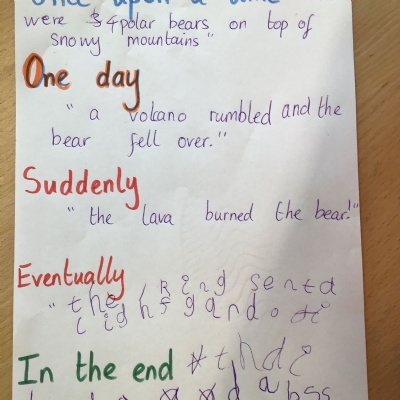 Once upon a time
were 4 polar bears on top of
snowy mountains"
One day
" a volcano rumbled and the
bear fell over."
Suddenly
" the lava burned the bear!"
Eventually
" the king send
In the end